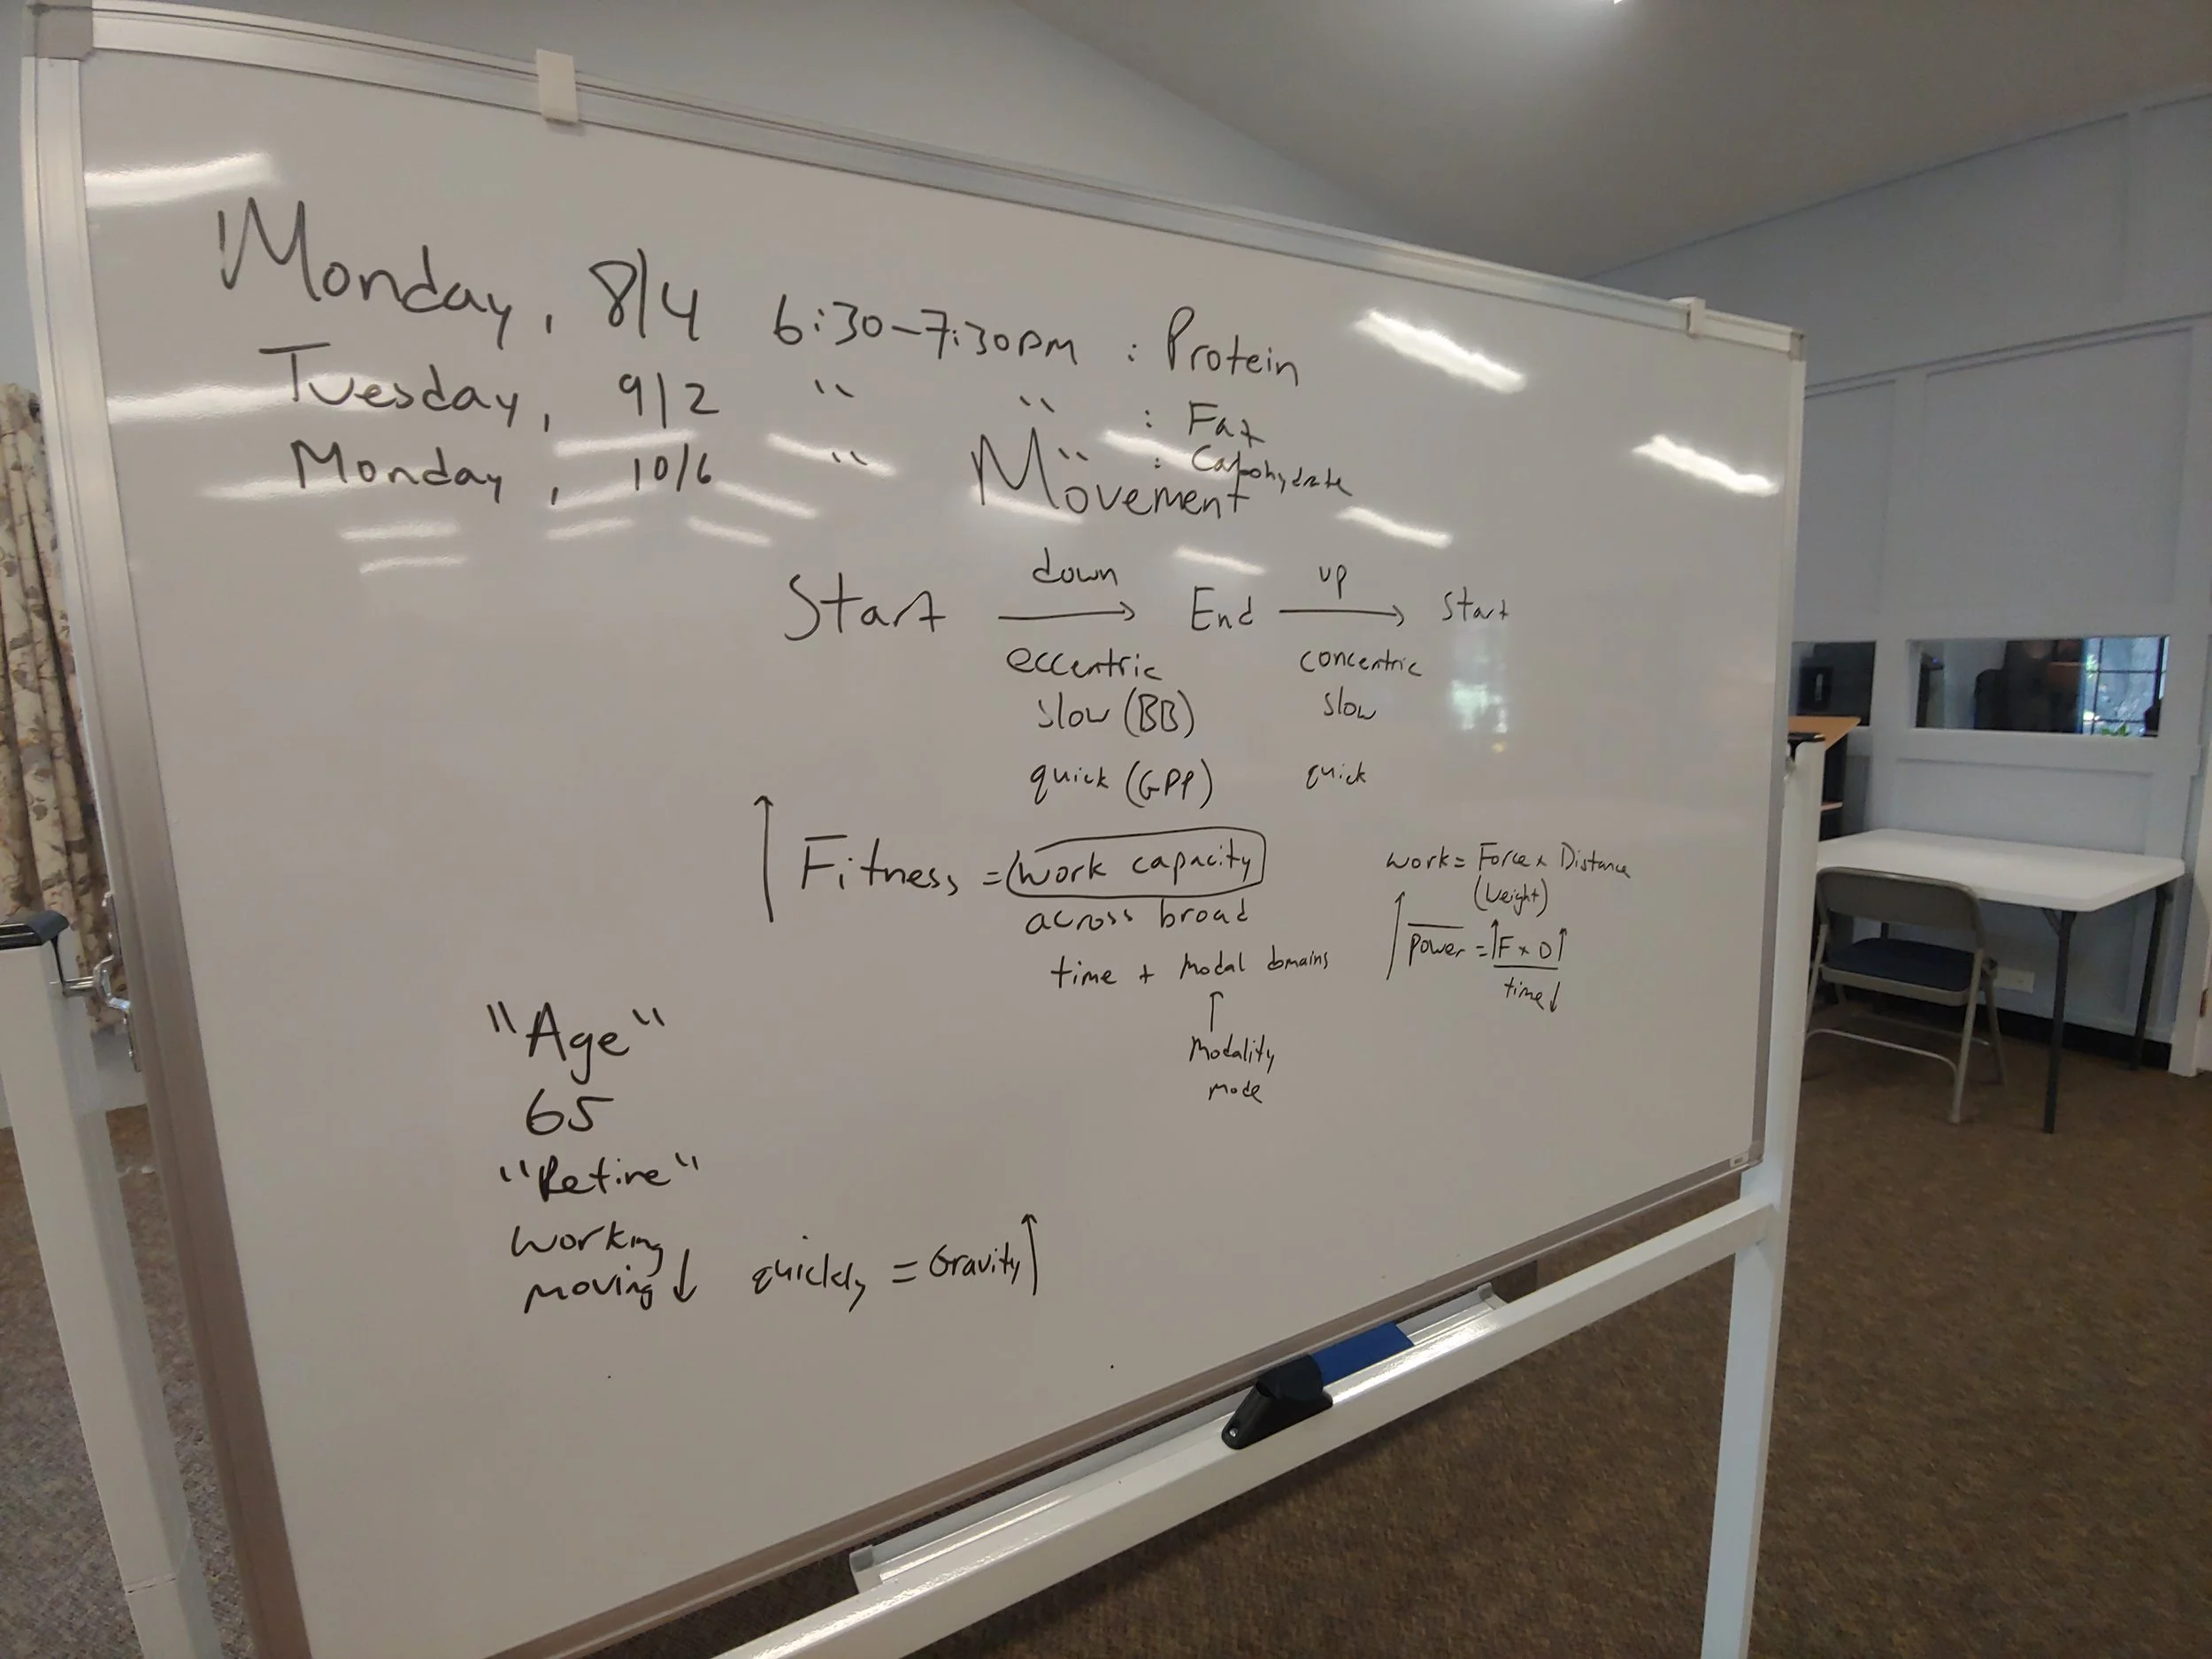 Monday, 8/4 6:30-7:30pm : Protein
Tuesday, 9/2 " " : Fat
Monday, 10/6 " " : Carbohydrate
Movement
Start down → End up → Start
eccentric concentric
slow (BB) slow
quick (GPP) quick
↑ Fitness = work capacity
across broad
time + modal domains
↑
Modality
mode
work = Force x Distance
(weight)
↑ Power = ↑F x D↑
time↓
"Age"
65
"Retire"
working
moving↓ quickly = Gravity↑